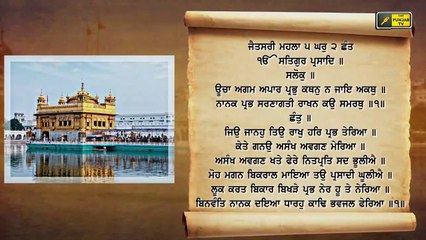 THE
PUNJAB
TV
ਜੈਤਸਰੀ ਮਹਲਾ ੫ ਘਰੁ ੨ ਛੰਤ
ੴ ਸਤਿਗੁਰ ਪ੍ਰਸਾਦਿ ॥
ਸਲੋਕੁ ॥
ਊਚਾ ਅਗਮ ਅਪਾਰ ਪ੍ਰਭੁ ਕਥਨੁ ਨ ਜਾਇ ਅਕਥੁ ॥
ਨਾਨਕ ਪ੍ਰਭ ਸਰਣਾਗਤੀ ਰਾਖਨ ਕਉ ਸਮਰਥੁ ॥੧॥
ਛੰਤੁ ॥
ਜਿਉ ਜਾਨਹੁ ਤਿਉ ਰਾਖੁ ਹਰਿ ਪ੍ਰਭ ਤੇਰਿਆ ॥
ਕੇਤੇ ਗਨਉ ਅਸੰਖ ਅਵਗਣ ਮੇਰਿਆ ॥
ਅਸੰਖ ਅਵਗਣ ਖਤੇ ਫੇਰੇ ਨਿਤਪ੍ਰਤਿ ਸਦ ਭੂਲੀਐ ॥
ਮੋਹ ਮਗਨ ਬਿਕਰਾਲ ਮਾਇਆ ਤਉ ਪ੍ਰਸਾਦੀ ਘੂਲੀਐ ॥
ਲੂਕ ਕਰਤ ਬਿਕਾਰ ਬਿਖੜੇ ਪ੍ਰਭ ਨੇਰ ਹੂ ਤੇ ਨੇਰਿਆ ॥
ਬਿਨਵੰਤਿ ਨਾਨਕ ਦਇਆ ਧਾਰਹੁ ਕਾਢਿ ਭਵਜਲ ਫੇਰਿਆ ॥੧॥